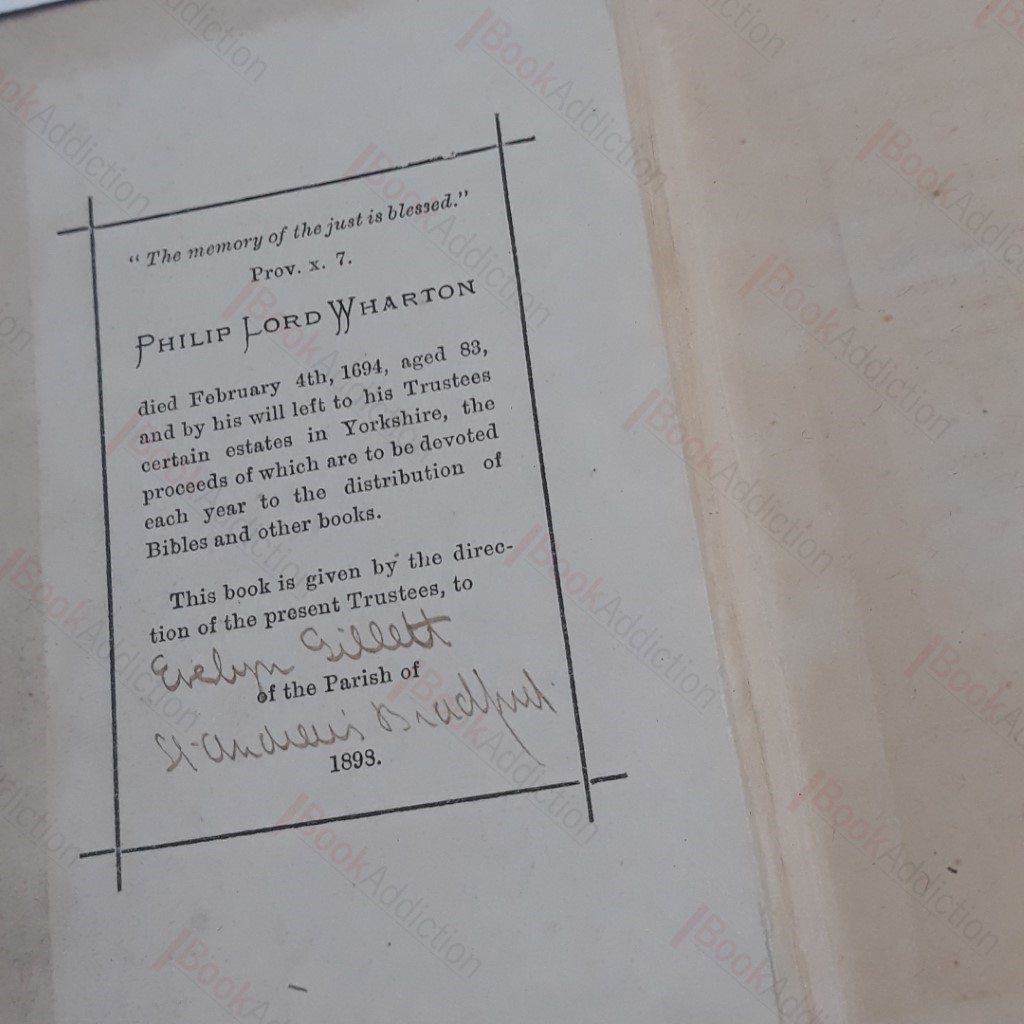 “The memory of the just is blessed.”
Prov. x. 7.
PHILIP LORD WHARTON
died February 4th, 1694, aged 83,
and by his will left to his Trustees
certain estates in Yorkshire, the
proceeds of which are to be devoted
each year to the distribution of
Bibles and other books.
This book is given by the direc-
tion of the present Trustees, to
Evelyn Gillett
of the Parish of
St. Andrew's Bradford.
1898.
BookAddiction